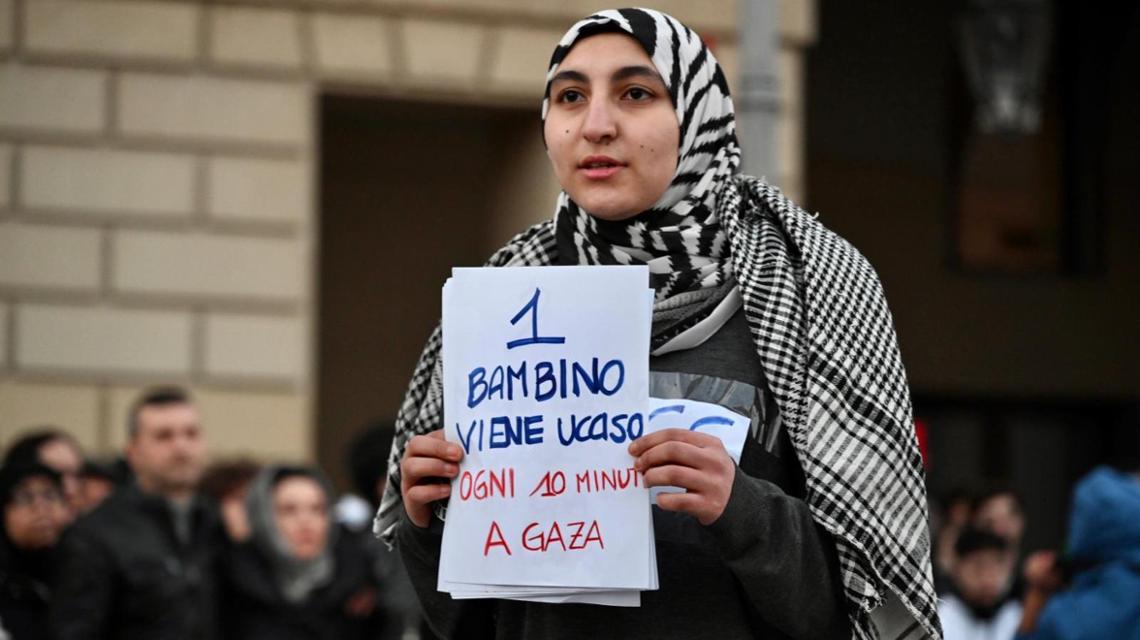 1
BAMBINO
VIENE UCASO
OGNI 10 MINUT
A GAZA